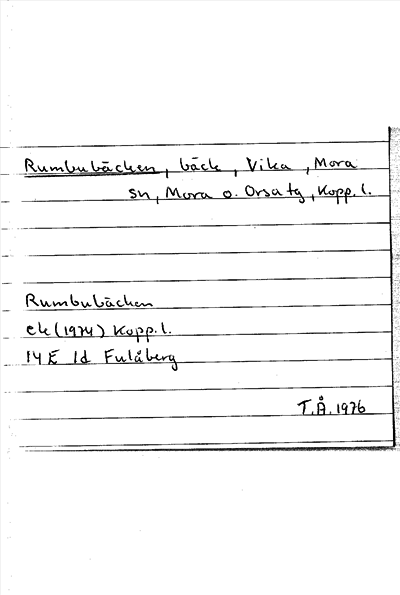 Rumbubäcken, bäck, Vika, Mora
sn, Mora o. Orsa tg, Kopp. l.
Rumbubäcken
ek (1974) Kopp. l.
14E 1d Fulåberg
T.Å. 1976